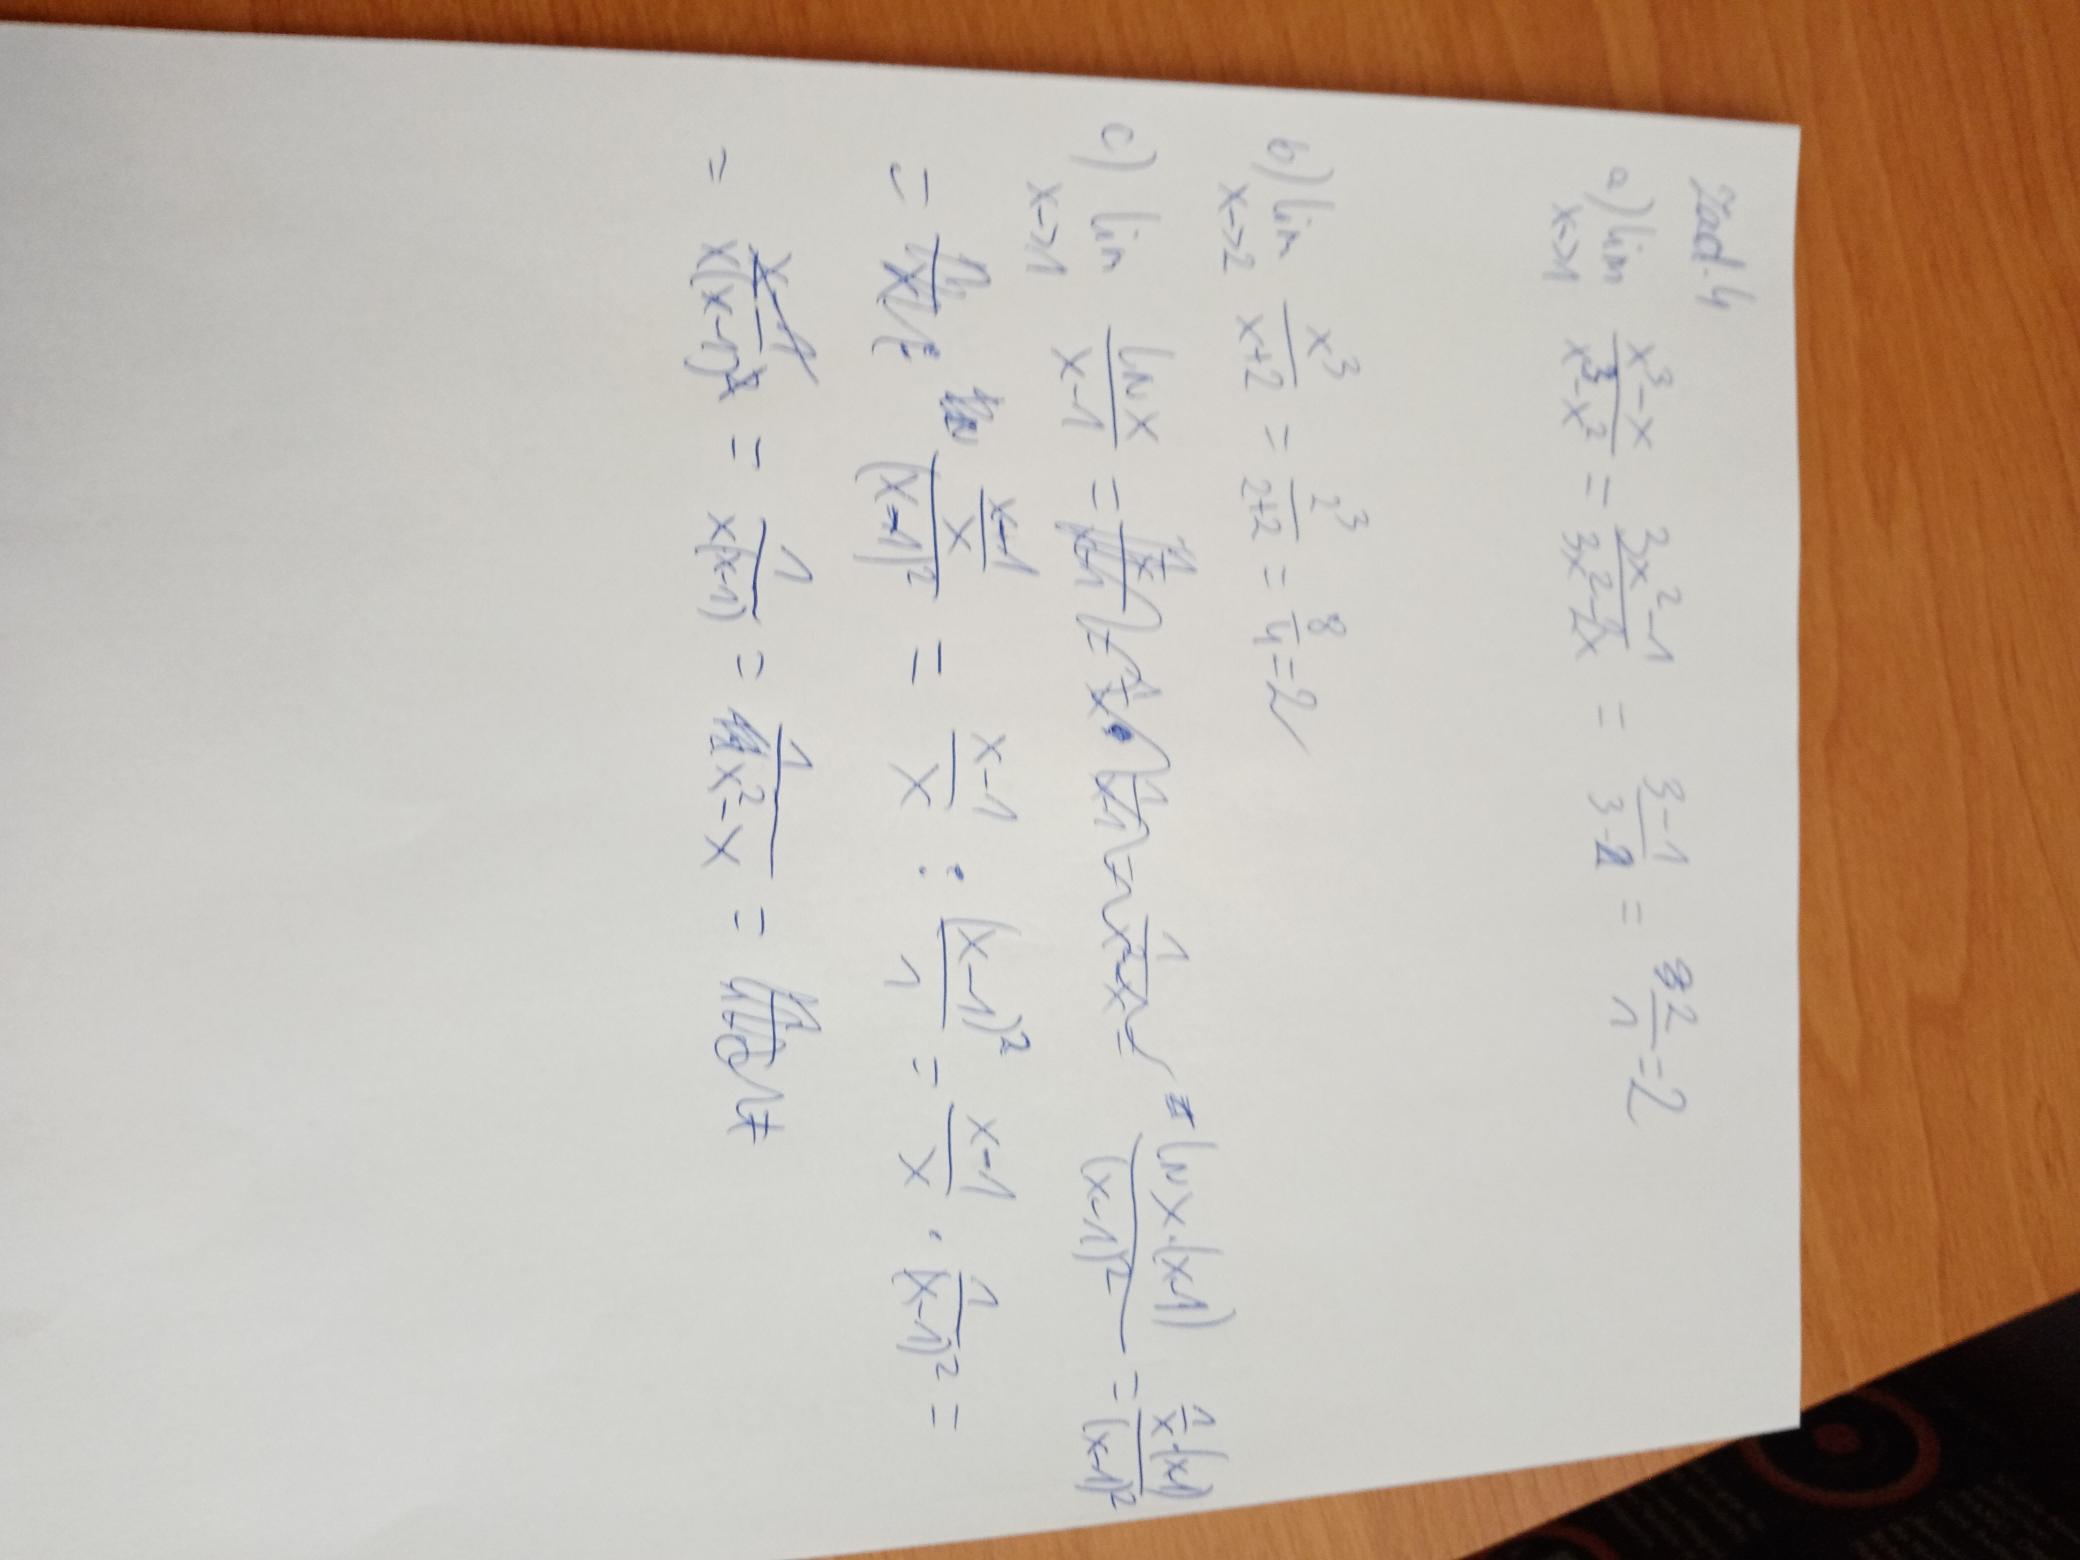 Zad. 4
a) lim x->1 (x³-x)/(x³-x²) = (3x²-1)/(3x²-2x) = (3-1)/(3-2) = 2/1 = 2
b) lim x->2 x³/(x+2) = 2³/(2+2) = 8/4 = 2
c) lim x->1 ln x/(x-1) = = (ln x·(x-1))/(x-1)² = (1/x·(x-1))/(x-1)²
= ((x-1)/x)/(x-1)² = (x-1)/x : (x-1)²/1 = (x-1)/x · 1/(x-1)² =
= (x-1)/(x(x-1)²) = 1/(x(x-1)) = 1/(x²-x) =